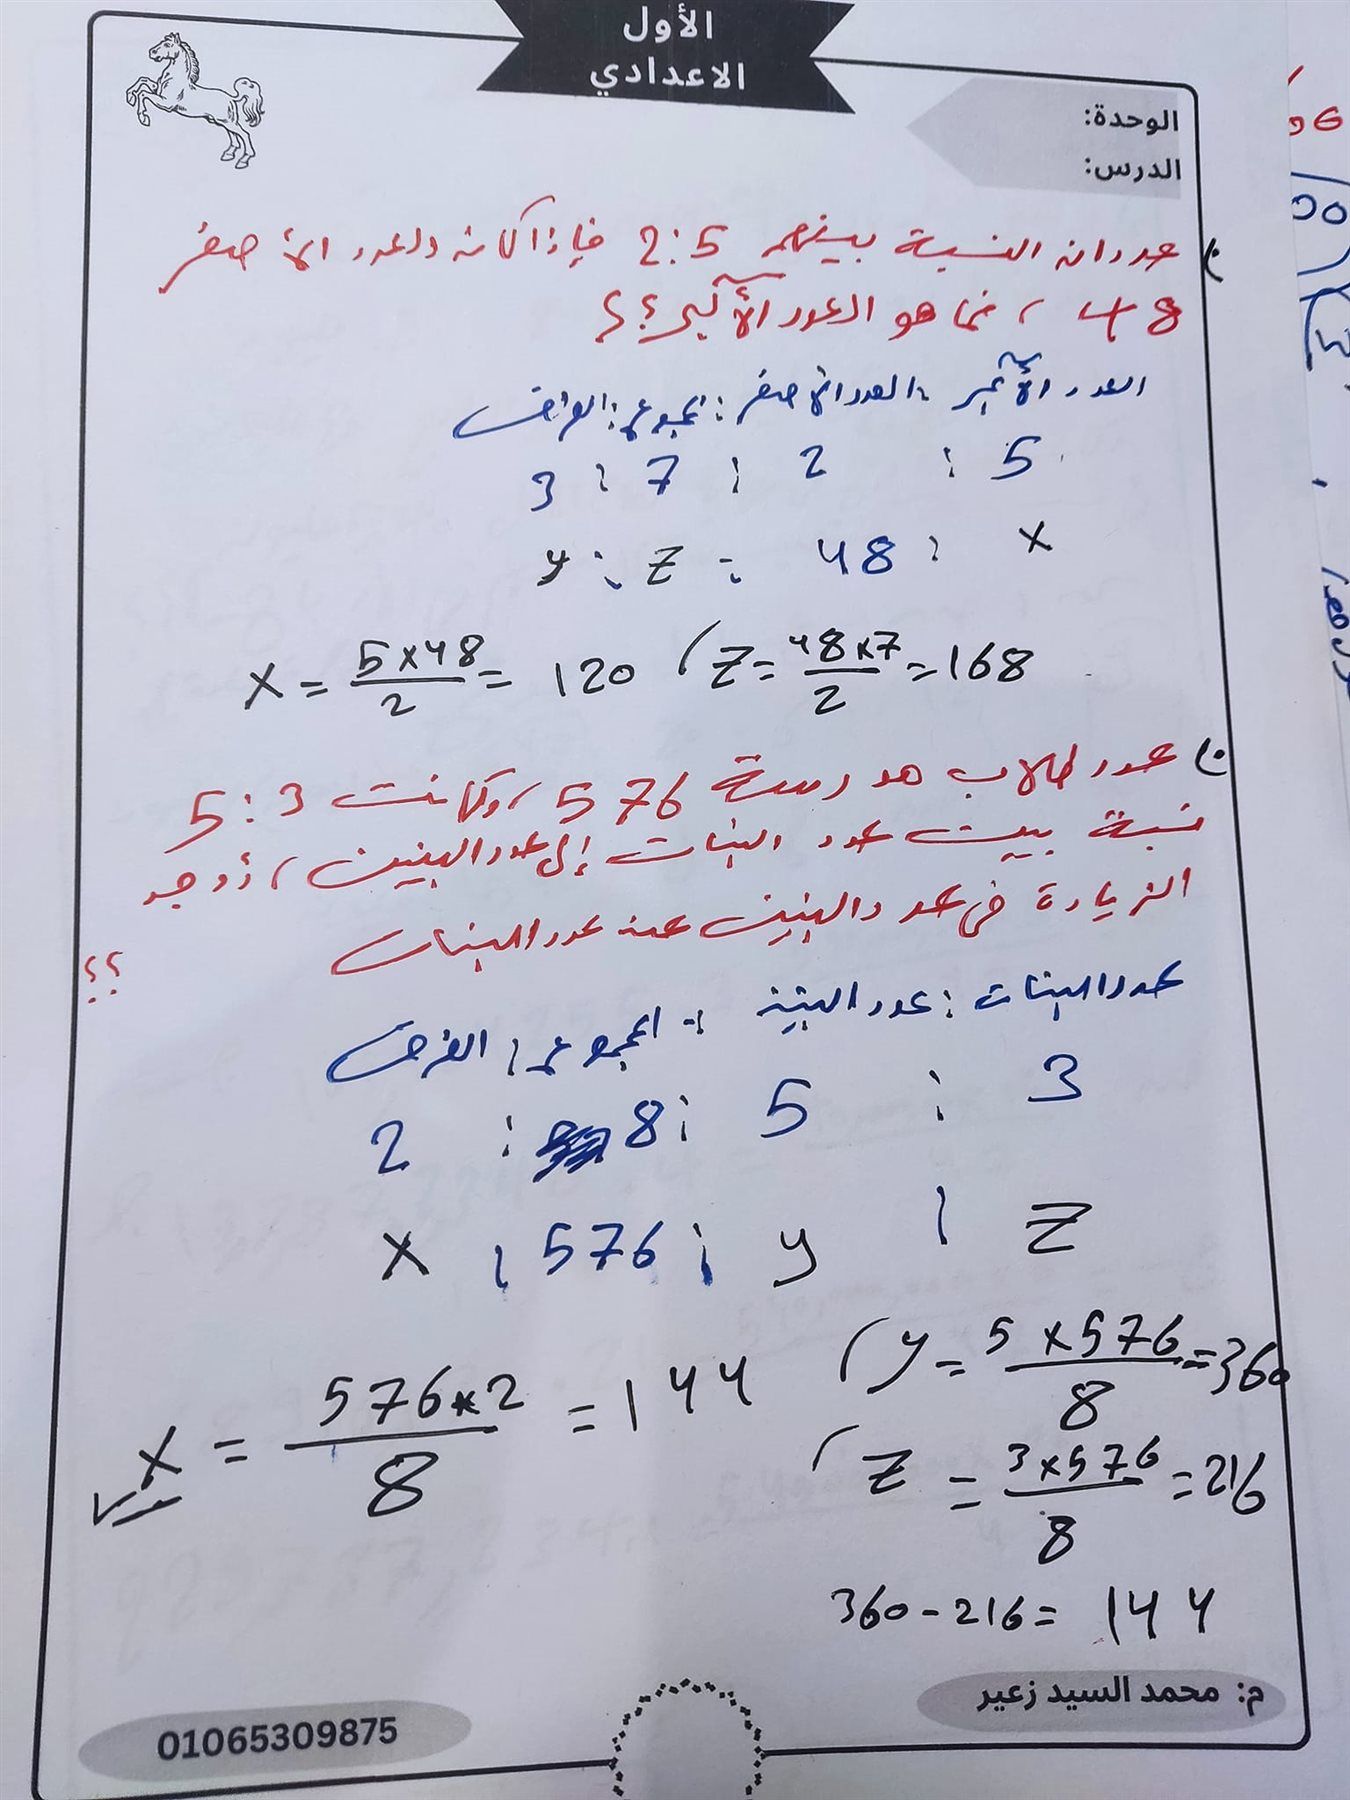 الأول
الاعدادي
الوحدة:
الدرس:
عددان النسبة بينهم 2:5 فإذا كان العدد الأصغر
48 ، فما هو العدد الأكبر؟؟
العدد الأكبر : العدد الأصغر : المجموع : الفرق
5 : 2 : 7 : 3
x : 48 : z : y
x = 5×48/2 = 120 ، z = 48×7/2 = 168
عدد طلاب مدرسة 576 ، وكانت 5:3
نسبة بين عدد البنات إلى عدد البنين ، أوجد
الزيادة في عدد البنين عن عدد البنات
؟؟
عدد البنات : عدد البنين : المجموع : الفرق
3 : 5 : 8 : 2
z : y : 576 : x
x = 576×2/8 = 144 ، y = 5×576/8 = 360
، z = 3×576/8 = 216
360 - 216 = 144
م: محمد السيد زعير
01065309875